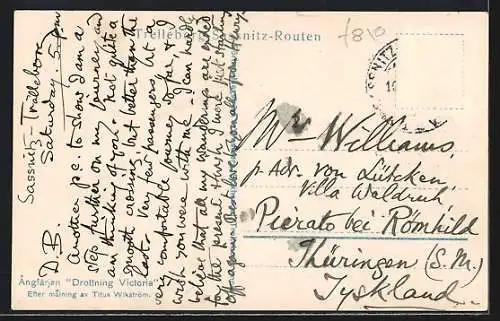 Trelleborg-Sassnitz-Routen
Sassnitz-Trälleborg
Saturday. 5 pm
D.B.
Another p.c. to show I am a
step further on my journey and
am thinking of you. Not quite a
smooth crossing, but better than the
last. Very few passengers, but a
very comfortable journey so far, & I
wish you were with me. I can hardly
believe that all my wanderings are ended
for the present, & wish I were just starting
off again. Best love from all yours Harry.
Mr Williams,
p. Adr. von Lütcken,
Villa Waldruh,
Pierato bei Römhild
Thüringen (S.M.)
Tyskland
Ångfärjan "Drottning Victoria"
Efter målning av Titus Wikström.